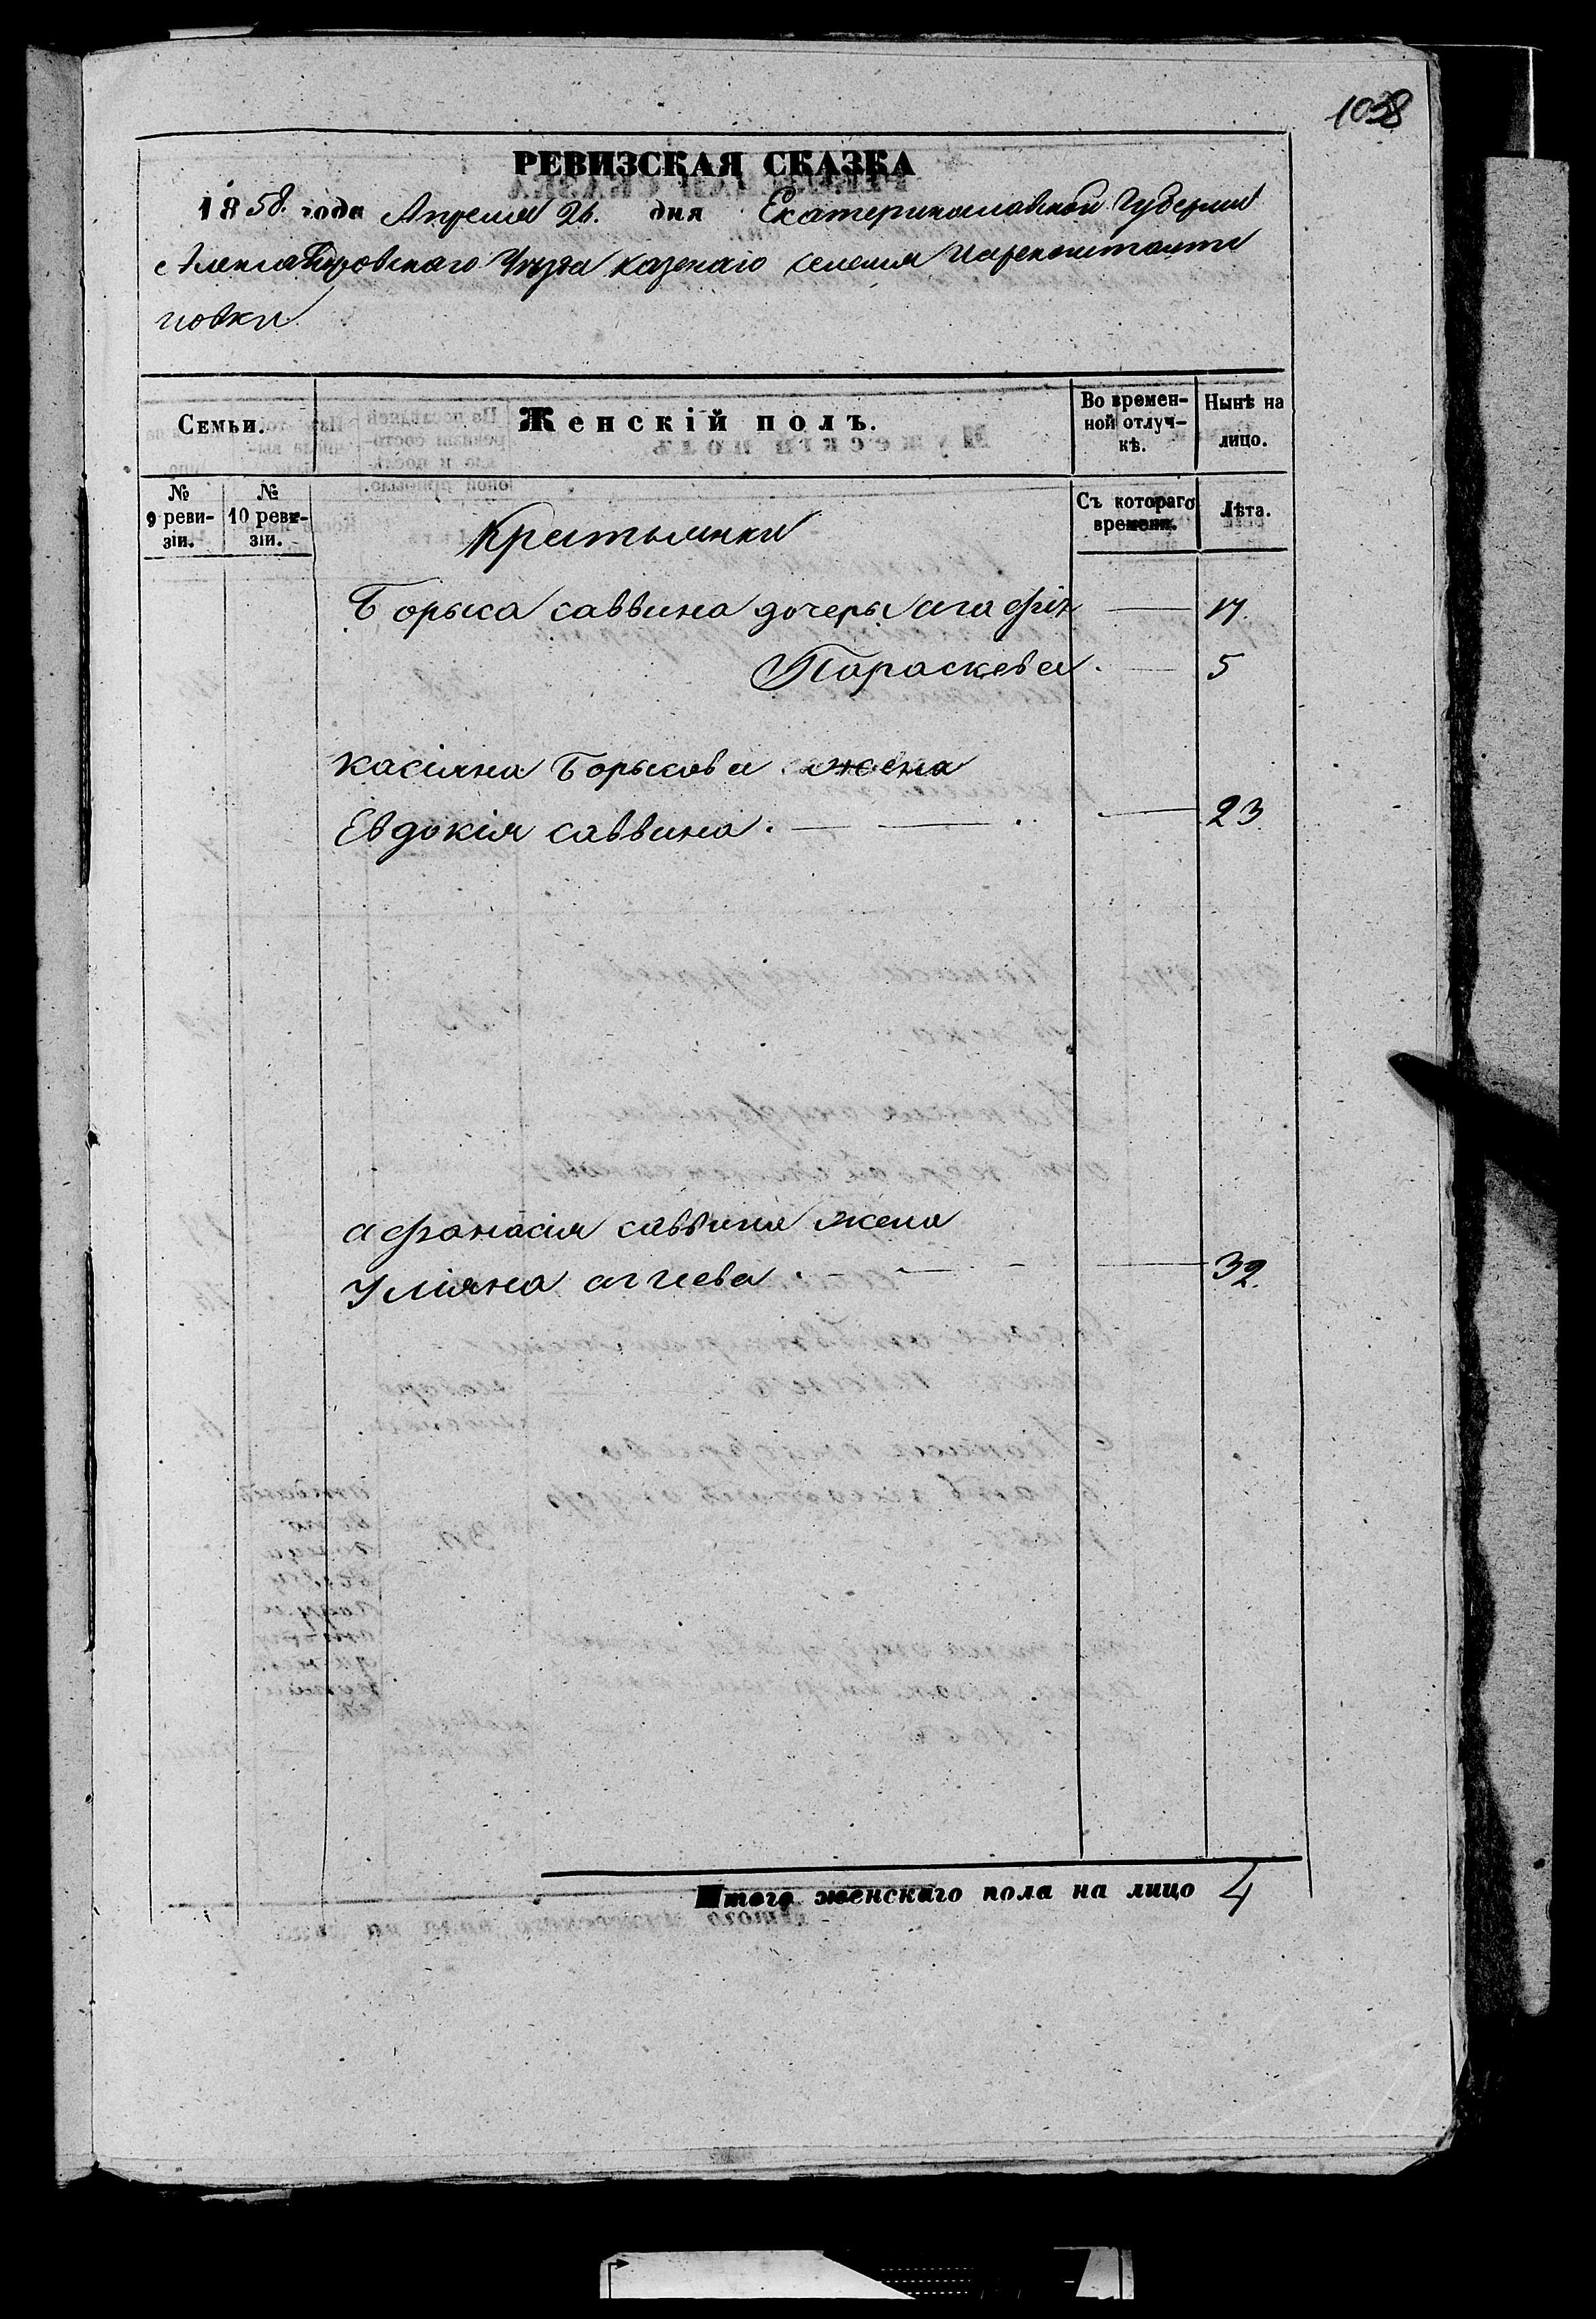 1038
РЕВИЗСКАЯ СКАЗКА
1858. года Апреля 26. дня Екатеринославской Губернии
Александровскаго Уезда казенаго селения Цареконстанти
новки
Семьи.
Женскій полъ.
Во времен-
ной отлуч-
кѣ.
Нынѣ на
лицо.
№
9 реви-
зіи.
№
10 реви-
зіи.
Съ котораго
времени.
Лѣта.
Крестьянки
Борыса саввина дочеры агафія — 17.
Параскева. — 5
касіяна Борысова жена
Евдокія саввина. — — . — 23
афанасія саввина жена
Уліяна аггеева . — — - — 32.
Итого женскаго пола на лицо 4